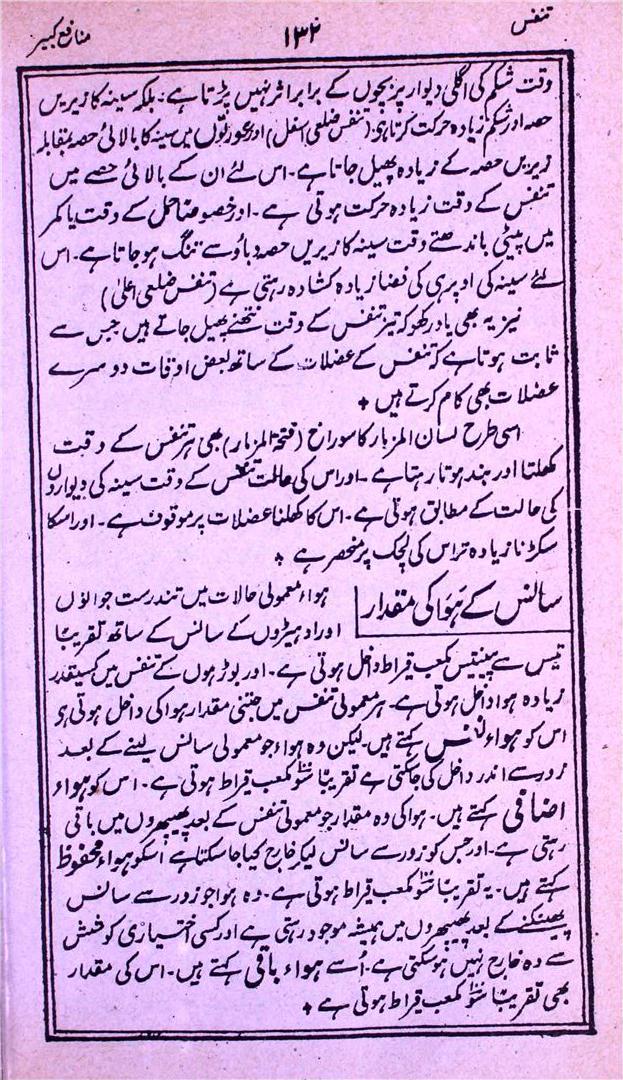 تنفس
۱۳۲
منافع کبیر
وقت شکم کی اگلی دیوار پر بچوں کے برابر اثر نہیں پڑتا ہے۔ بلکہ سینہ کا زیریں
حصہ اور شکم زیادہ حرکت کرتا ہی (تنفس ضلعی اسفل) اور عورتوں میں سینہ کا بالائی حصہ بمقابلہ
زیریں حصہ کے زیادہ پھیل جاتا ہے۔ اس لئے ان کے بالائی حصے میں
تنفس کے وقت زیادہ حرکت ہوتی ہے۔ اور خصوصاً حمل کے وقت یا کمر
میں پیٹی باندھتے وقت سینہ کا زیریں حصہ دباؤ سے تنگ ہو جاتا ہے۔ اس
لئے سینہ کی اوپری کی فضا زیادہ کشادہ رہتی ہے (تنفس ضلعی اعلیٰ)
نیز یہ بھی یاد رکھو کہ تیز تنفس کے وقت نتھنے پھیل جاتے ہیں جس سے
ثابت ہوتا ہے کہ تنفس کے عضلات کے ساتھ بعض اوقات دوسرے
عضلات بھی کام کرتے ہیں ٭
اسی طرح لسان المزمار کا سوراخ (فتحۃ المزمار) بھی ہر تنفس کے وقت
کھلتا اور بند ہوتا رہتا ہے۔ اور اس کی حالت تنفس کے وقت سینہ کی دیواروں
کی حالت کے مطابق ہوتی ہے۔ اس کا کھلنا عضلات پر موقوف ہے۔ اور اسکا
سکڑنا زیادہ تر اس کی لچک پر منحصر ہے ٭
سانس کے ہَوا کی مقدار
ہواء معمولی حالات میں تندرست جوانوں
اور ادہیڑوں کے سانس کے ساتھ تقریبًا
تیس سے پینتیس مکعب قیراط داخل ہوتی ہے۔ اور بوڑہوں کے تنفس میں کسیقدر
زیادہ ہوا داخل ہوتی ہے۔ ہر معمولی تنفس میں جتنی مقدار ہوا کی داخل ہوتی ہی
اس کو ہواء نفس کہتے ہیں۔ لیکن وہ ہواء جو معمولی سانس لینے کے بعد
زور سے اندر داخل کی جا سکتی ہے تقریبًا سَو مکعب قیراط ہوتی ہے۔ اس کو ہواء
اضافی کہتے ہیں۔ ہوا کی وہ مقدار جو معمولی تنفس کے بعد پھیپھڑوں میں باقی
رہتی ہے۔ اور جس کو زور سے سانس لیکر خارج کیا جا سکتا ہے اسکو ہواء محفوظ
کہتے ہیں۔ یہ تقریبًا سَو مکعب قیراط ہوتی ہے۔ وہ ہوا جو زور سے سانس
پھینکنے کے بعد پھیپھڑوں میں ہمیشہ موجود رہتی ہے اور کسی اختیاری کوشش
سے وہ خارج نہیں ہو سکتی ہے۔ اُسے ہواء باقی کہتے ہیں۔ اس کی مقدار
بھی تقریبًا سَو مکعب قیراط ہوتی ہے ٭